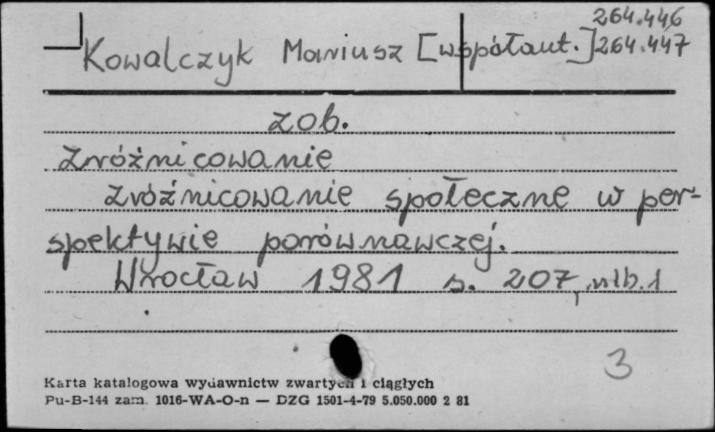 264.446
Kowalczyk Mariusz [współaut.] 264.447
zob.
Zróżnicowanie
Zróżnicowanie społeczne w per-
spektywie porównawczej.
Wrocław 1981 s. 207, nlb. 1
3
Karta katalogowa wydawnictw zwartych i ciągłych
Pu-B-144 zam. 1016-WA-O-n — DZG 1501-4-79 5.050.000 2 81